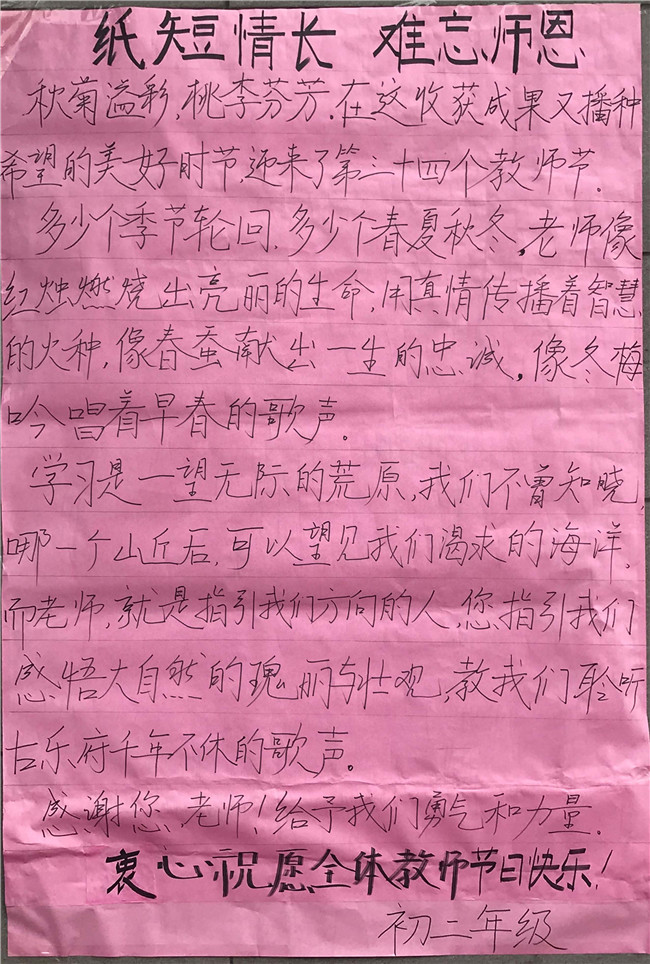 纸短情长 难忘师恩
秋菊溢彩,桃李芬芳.在这收获成果又播种
希望的美好时节,迎来了第三十四个教师节.
多少个季节轮回,多少个春夏秋冬,老师像
红烛燃烧出亮丽的生命,用真情传播着智慧
的火种,像春蚕献出一生的忠诚,像冬梅
吟唱着早春的歌声。
学习是一望无际的荒原,我们不曾知晓,
哪一个山丘后,可以望见我们渴求的海洋.
而老师,就是指引我们方向的人,您指引我们
感悟大自然的瑰丽与壮观,教我们聆听
古乐府千年不休的歌声。
感谢您,老师!给予我们勇气和力量.
衷心祝愿全体教师节日快乐!
初二年级